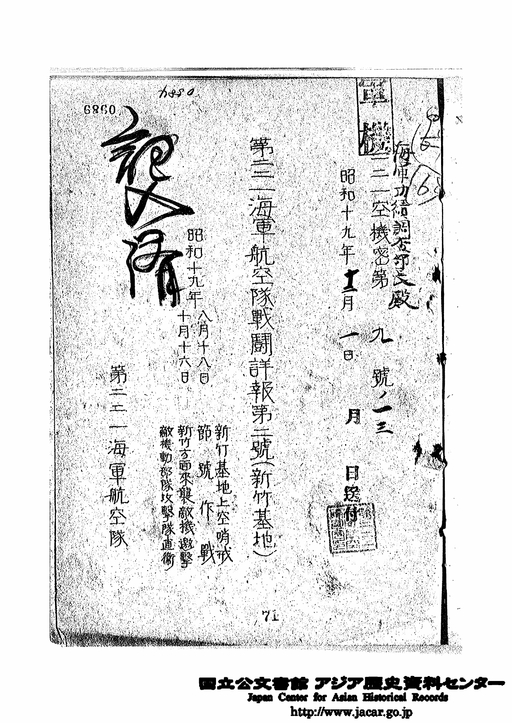 海軍功績調査部長殿
軍機
二二一空機密第九號ノ一三
昭和十九年十二月一日
月 日送付
第二二一海軍航空隊戰鬪詳報第二號(新竹基地)
新竹基地上空哨戒
號作戰
新竹方面來襲敵機邀擊
敵機動部隊攻擊隊直衞
昭和十九年
八月十八日
十月十六日
第二二一海軍航空隊
記入済
71
国立公文書館 アジア歴史資料センター
Japan Center for Asian Historical Records
http://www.jacar.go.jp